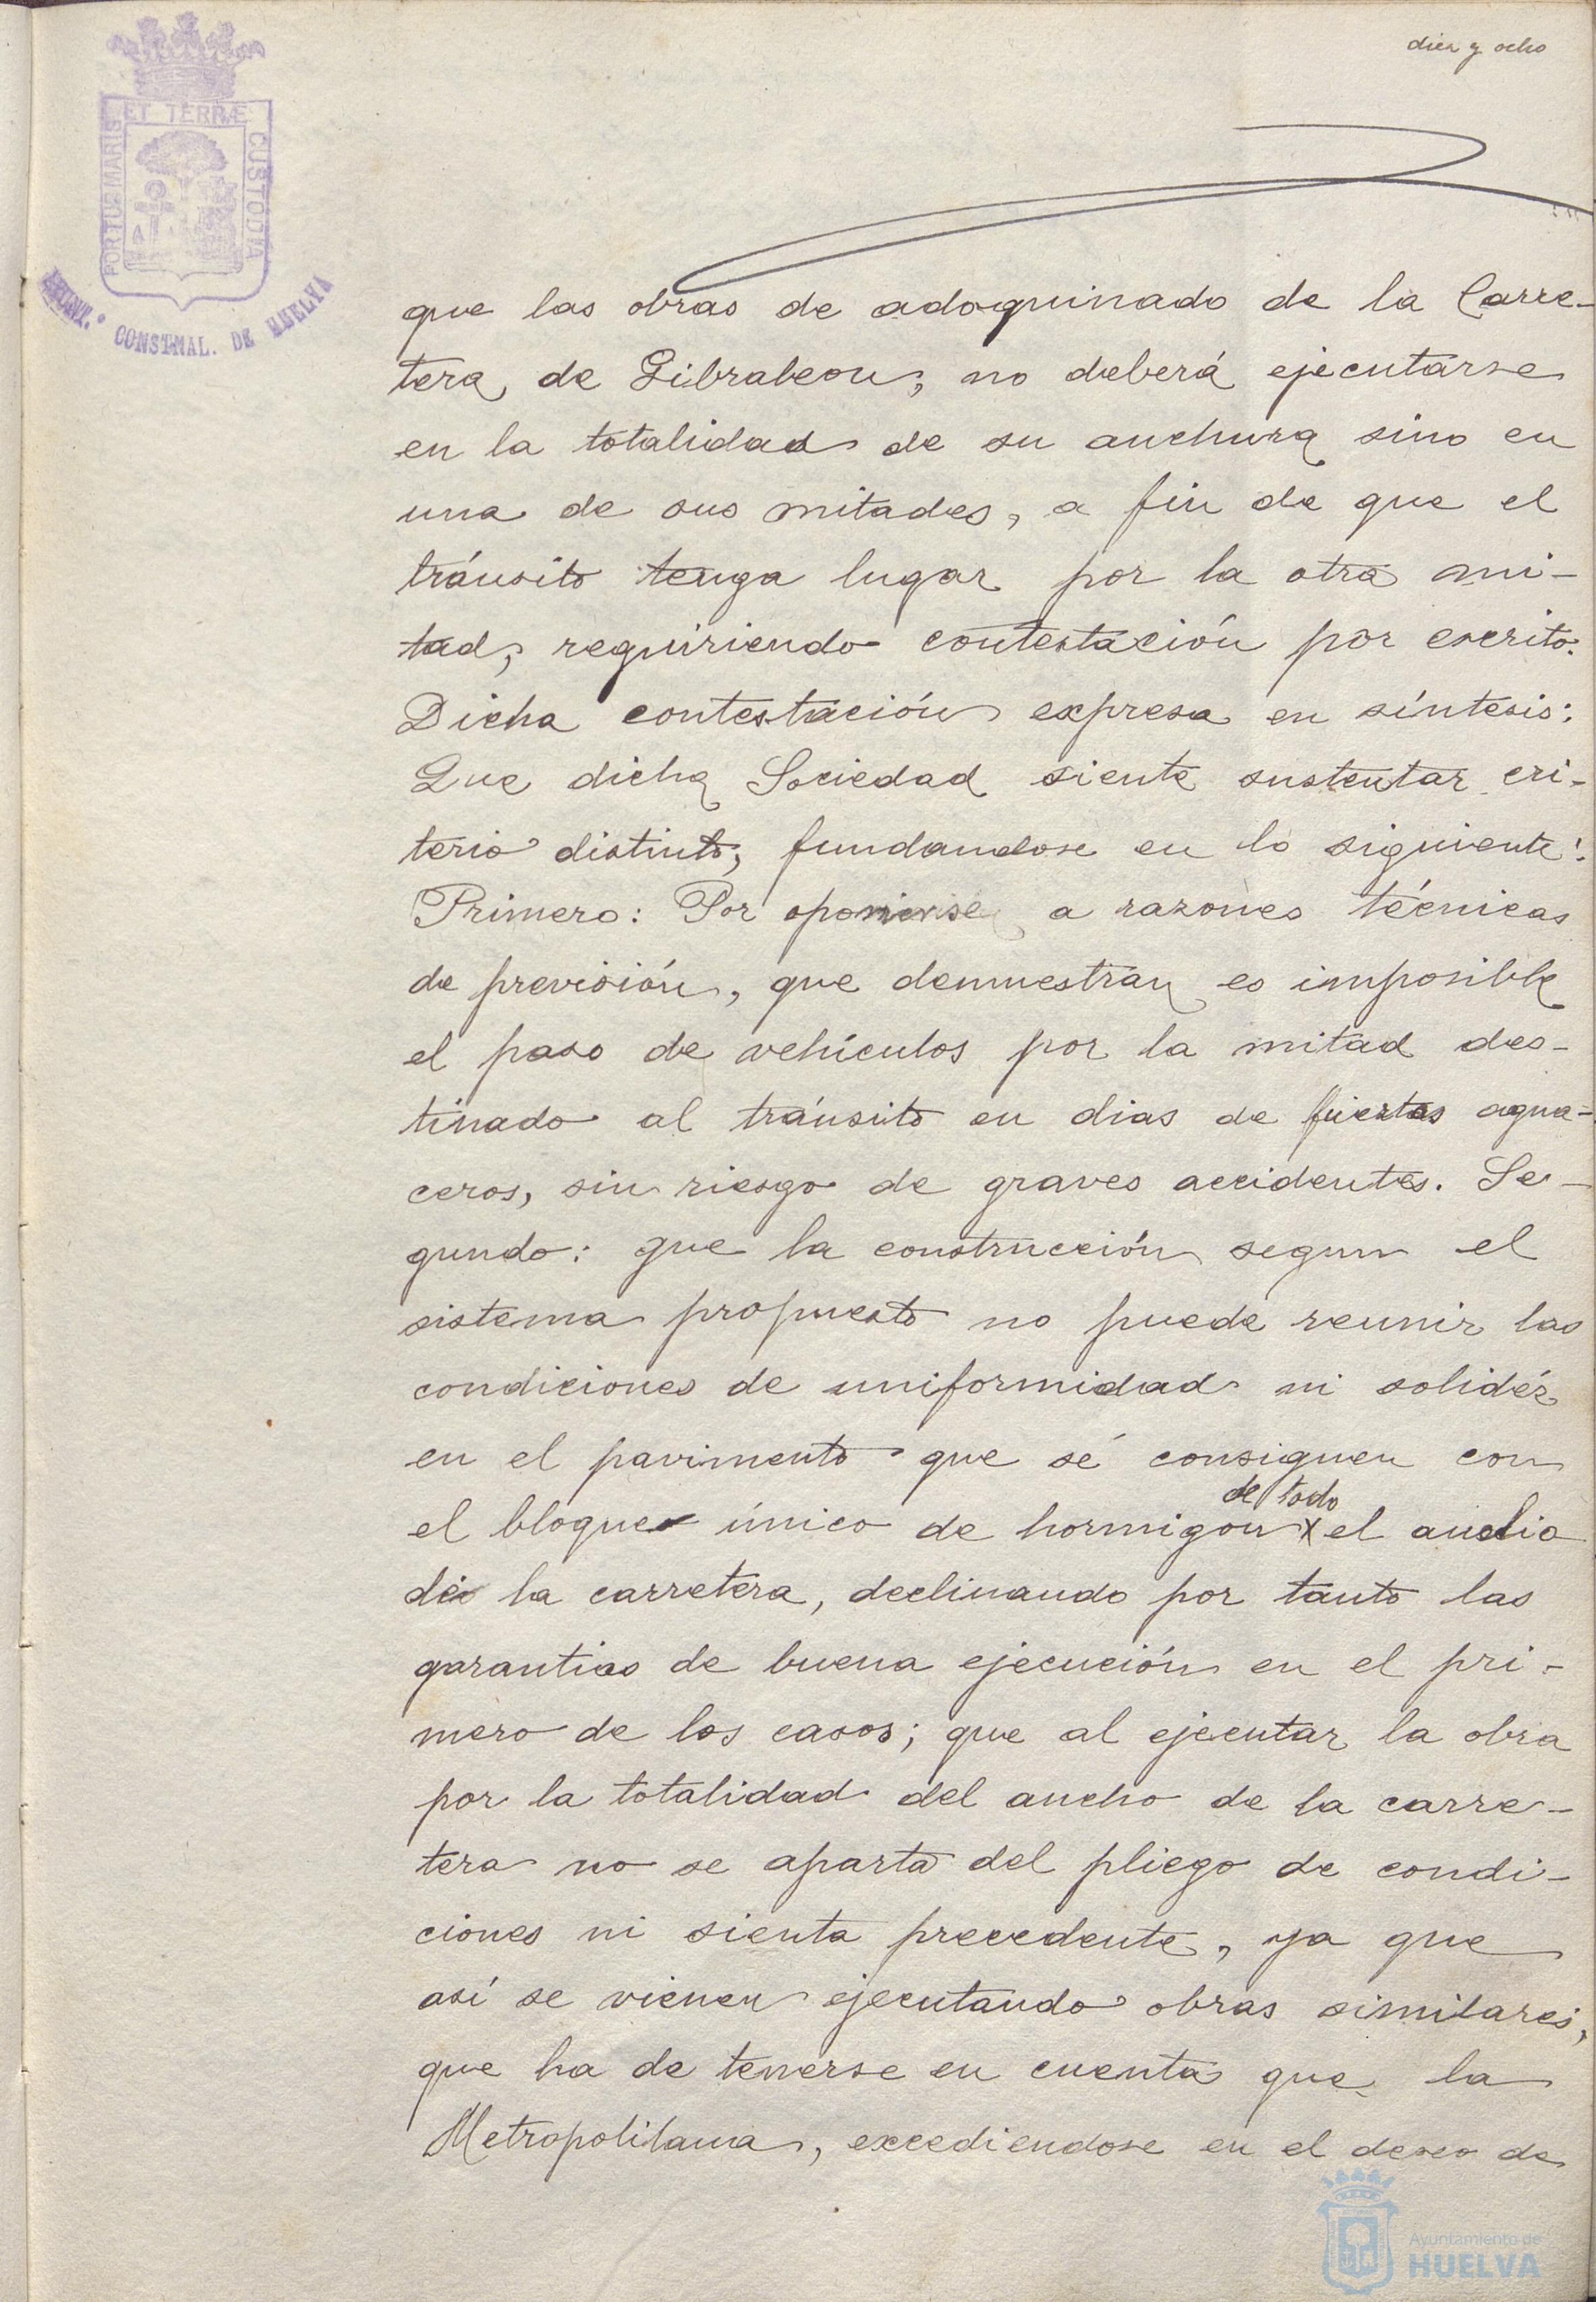 diez y ocho
PORTUS MARIS ET TERRÆ CUSTODIA
AYUNT.º CONST.NAL. DE HUELVA
que las obras de adoquinado de la Carre-
tera de Gibraleon, no deberá ejecutarse
en la totalidad de su anchura sino en
una de sus mitades, a fin de que el
tránsito tenga lugar por la otra mi-
tad, requiriendo contestación por escrito.
Dicha contestación expresa en síntesis:
Que dicha Sociedad siente sustentar cri-
terio distinto, fundandose en lo siguiente:
Primero: Por oponerse a razones técnicas
de previsión, que demuestran es imposible
el paso de vehículos por la mitad des-
tinado al tránsito en dias de fuertes agua-
ceros, sin riesgo de graves accidentes. Se-
gundo: que la construcción segun el
sistema propuesto no puede reunir las
condiciones de uniformidad ni solidéz
en el pavimento que sé consiguen con
de todo
el bloque único de hormigon x el ancho
de la carretera, declinando por tanto las
garantias de buena ejecución en el pri-
mero de los casos; que al ejecutar la obra
por la totalidad del ancho de la carre-
tera no se aparta del pliego de condi-
ciones ni sienta precedente, ya que
así se vienen ejecutando obras similares,
que ha de tenerse en cuenta que la
Metropolitana, excediendose en el deseo de
Ayuntamiento de
HUELVA